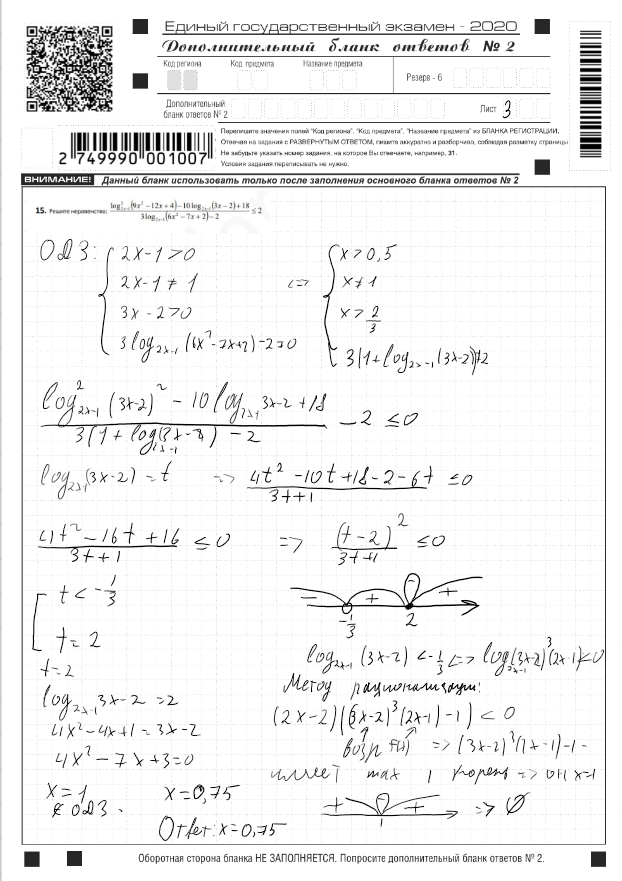 Единый государственный экзамен - 2020
Дополнительный бланк ответов № 2
Код региона Код предмета Название предмета
Резерв - 6
Дополнительный бланк ответов № 2
Лист 3
Перепишите значения полей "Код региона", "Код предмета", "Название предмета" из БЛАНКА РЕГИСТРАЦИИ.
Отвечая на задания с РАЗВЕРНУТЫМ ОТВЕТОМ, пишите аккуратно и разборчиво, соблюдая разметку страницы
Не забудьте указать номер задания, на которое Вы отвечаете, например, 31.
Условия задания переписывать не нужно.
2 749990 001007
ВНИМАНИЕ! Данный бланк использовать только после заполнения основного бланка ответов № 2
15. Решите неравенство: (log²_{2x-1}(9x² − 12x + 4) − 10 log_{2x-1}(3x − 2) + 18) / (3 log_{2x-1}(6x² − 7x + 2) − 2) ≤ 2
ОДЗ: { 2x-1>0 <=> { x>0,5
2x-1≠1 x≠1
3x-2>0 x>2/3
3log_{2x-1}(6x²-7x+2)-2≠0 3(1+log_{2x-1}(3x-2))≠2
(log²_{2x-1}(3x-2)² - 10log_{2x-1}3x-2+18) / (3(1+log_{2x-1}(3x-2) - 2) - 2 ≤ 0
log_{2x-1}(3x-2) = t => (4t²-10t+18-2-6t) / (3t+1) ≤ 0
(4t²-16t+16) / (3t+1) ≤ 0 => (t-2)² / (3t+1) ≤ 0
[ t < -1/3
t = 2
- + - +
-1/3 2
t=2
log_{2x-1}3x-2=2
4x²-4x+1=3x-2
4x²-7x+3=0
x=1 x=0,75
∉ ОДЗ.
Ответ: x=0,75
log_{2x-1}(3x-2) < -1/3 <=> log_{2x-1}(3x-2)³(2x-1)<0
Метод рационализации:
(2x-2)((3x-2)³(2x-1)-1) < 0
возр f(x) => (3x-2)³(2x-1)-1 -
имеет max 1 корень => он x=1
+ - + => ∅
1
Оборотная сторона бланка НЕ ЗАПОЛНЯЕТСЯ. Попросите дополнительный бланк ответов № 2.